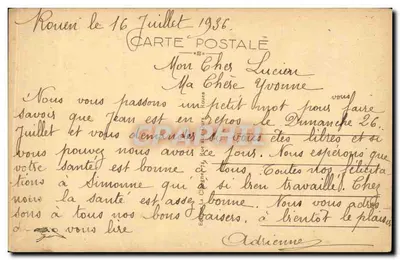 Rouen le 16 Juillet 1936.
CARTE POSTALE
Mon Cher Lucien
Ma Chère Yvonne
Nous vous passons un petit mot pour vous faire
savoir que Jean est en repos le Dimanche 26
Juillet et vous demande si êtes des libres et si
vous pouvez nous avoir ce jour. Nous espérons que
votre santé est bonne à tous. Toutes nos félicita
tions à Simonne qui a si bien travaillé. Chez
nous la santé est assez bonne. Nous vous adres
sons à tous nos bons baisers. à bientôt le plaisir
de vous lire
Adrienne